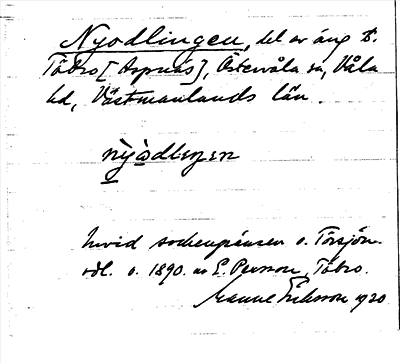 Nyodlingen, del av äng t.
Täbro [Aspnäs], Östervåla sn, Våla
hd, Västmanlands län.
nỳòdlıŋen
Invid sockengränsen o. Torsjön.
odl. o. 1890. av E. Persson, Täbro.
Manne Eriksson 1920